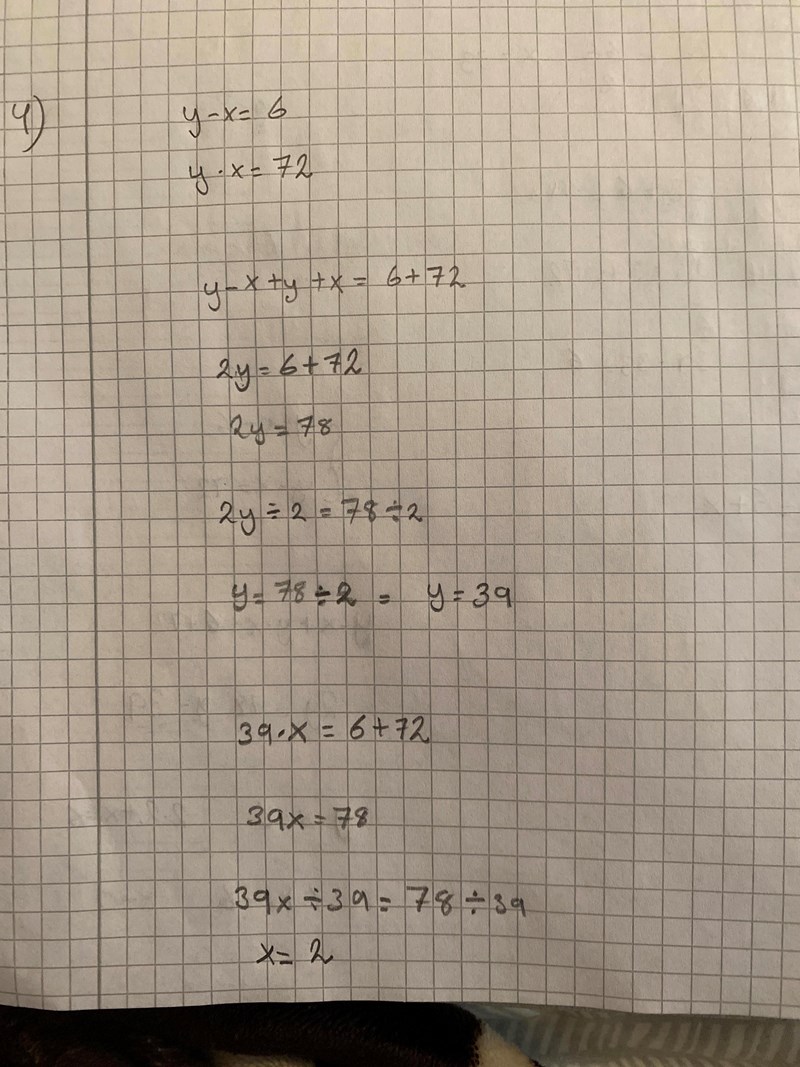 4)
y-x= 6
y·x= 72
y-x+y+x= 6+72
2y=6+72
2y=78
2y÷2=78÷2
y=78÷2 = y=39
39·x=6+72
39x=78
39x÷39=78÷39
x=2